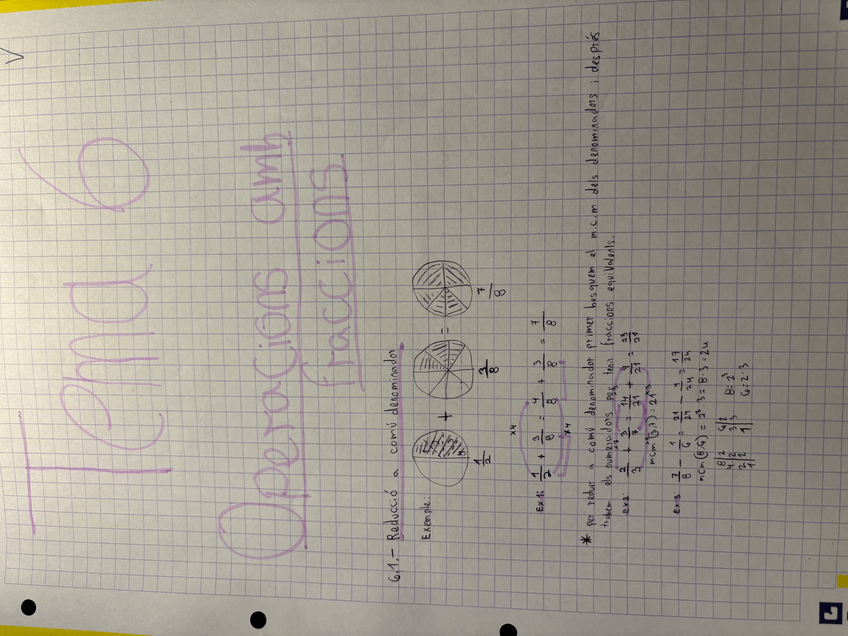 Tema 6
Operacions amb
fraccions.
6.1.- Reducció a comú denominador
Exemple:
+ =
1/2 3/8 7/8
x4
Ex1: 1/2 + 3/8 = 4/8 + 3/8 = 7/8
x4
* Per reduir a comú denominador primer busquem el m.c.m dels denominadors i després
trobem els numeradors per tenir fraccions equivalents.
Ex2: 2/3 + 3/7 = 14/21 + 9/21 = 23/21
mcm(3,7) = 21
Ex3: 7/8 - 1/6 = 21/24 - 4/24 = 17/24
mcm(8,6) = 2³·3 = 8·3 = 24
8|2 6|2 8=2³
4|2 3|3 6=2·3
2|2 1|
1|